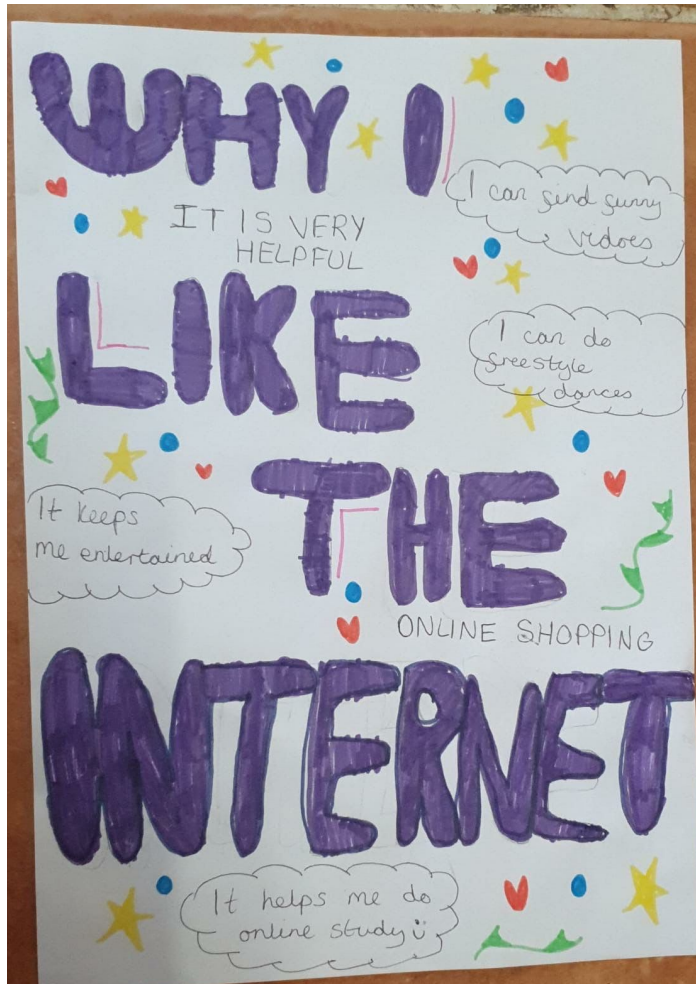 WHY I
I can find funny
vidoes
IT IS VERY
HELPFUL
LIKE
I can do
freestyle
dances
It keeps
me entertained
THE
ONLINE SHOPPING
INTERNET
It helps me do
online study